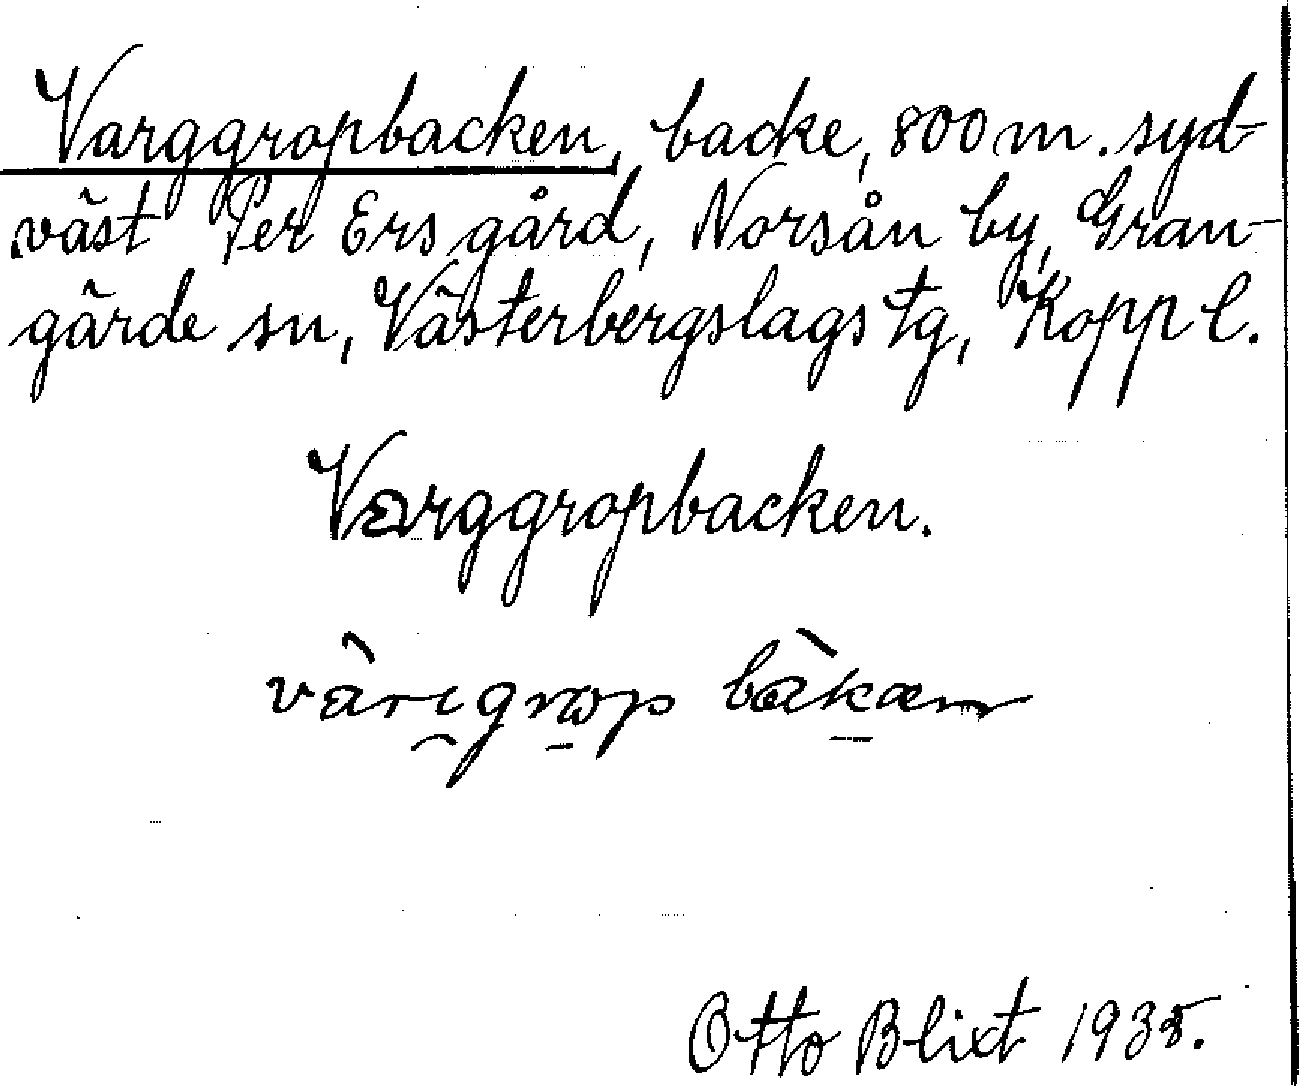 Varggropbacken, backe, 800 m. syd-
väst Per Ers gård, Norsån by, Gran-
gärde sn, Västerbergslags tg, Kopp l.
Varggropbacken.
Otto Blixt 1935.